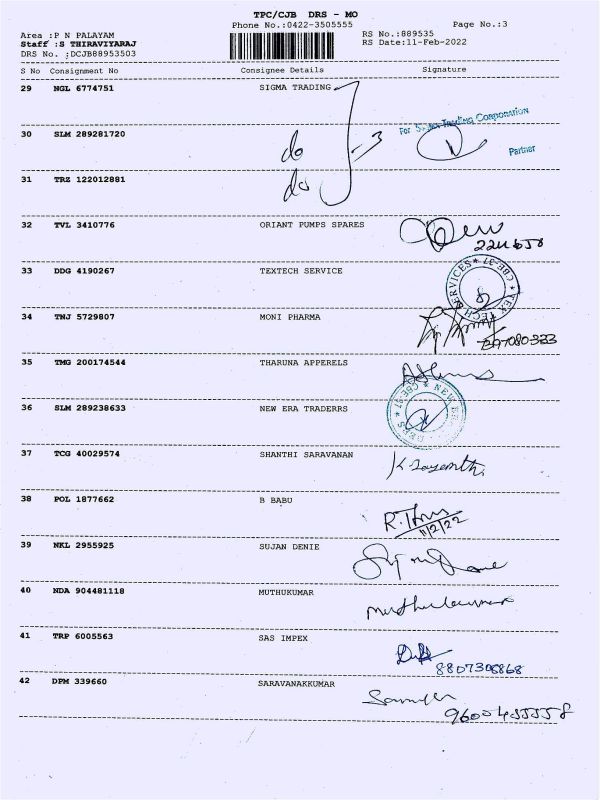 TPC/CJB DRS - MO
Phone No.:0422-3505555
Page No.:3
Area :P N PALAYAM
RS No.:889535
Staff :S THIRAVIYARAJ
RS Date:11-Feb-2022
DRS No. :DCJB88953503
S No Consignment No Consignee Details Signature
29 NGL 6774751 SIGMA TRADING
For Sigma Trading Corporation
30 SLM 289281720 do
Partner
31 TRZ 122012881 do
32 TVL 3410776 ORIANT PUMPS SPARES
33 DDG 4190267 TEXTECH SERVICE
TEX TECH SERVICES * CBE-37 *
34 TNJ 5729807 MONI PHARMA
35 TMG 200174544 THARUNA APPERELS
36 SLM 289238633 NEW ERA TRADERRS
37 TCG 40029574 SHANTHI SARAVANAN
38 POL 1877662 B BABU
11/2/22
39 NKL 2955925 SUJAN DENIE
40 NDA 904481118 MUTHUKUMAR
Muthukumar
41 TRP 6005563 SAS IMPEX
8807308868
42 DPM 339660 SARAVANAKKUMAR